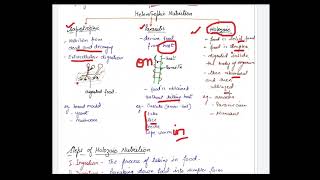 Heterotrophic Nutrition
Saprotrophic
- Nutrition from
dead and decaying
- Extracellular digestion
digested food.
eg - bread mould
- yeast
- mushroom
Parasitic
from host
on
host
- food is obtained
without killing host
eg - Cuscuta (Amar bel)
ticks
lice
Tape worms
in
Holozoic
- food is solid food
- food is
digested inside
the body of organism
- then absorbed and
then
utilized
eg - amoeba
- Paramoecium
- Human
Steps of Holozoic Nutrition
I Ingestion - The process of taking in food.
- Breaking down food into simpler form